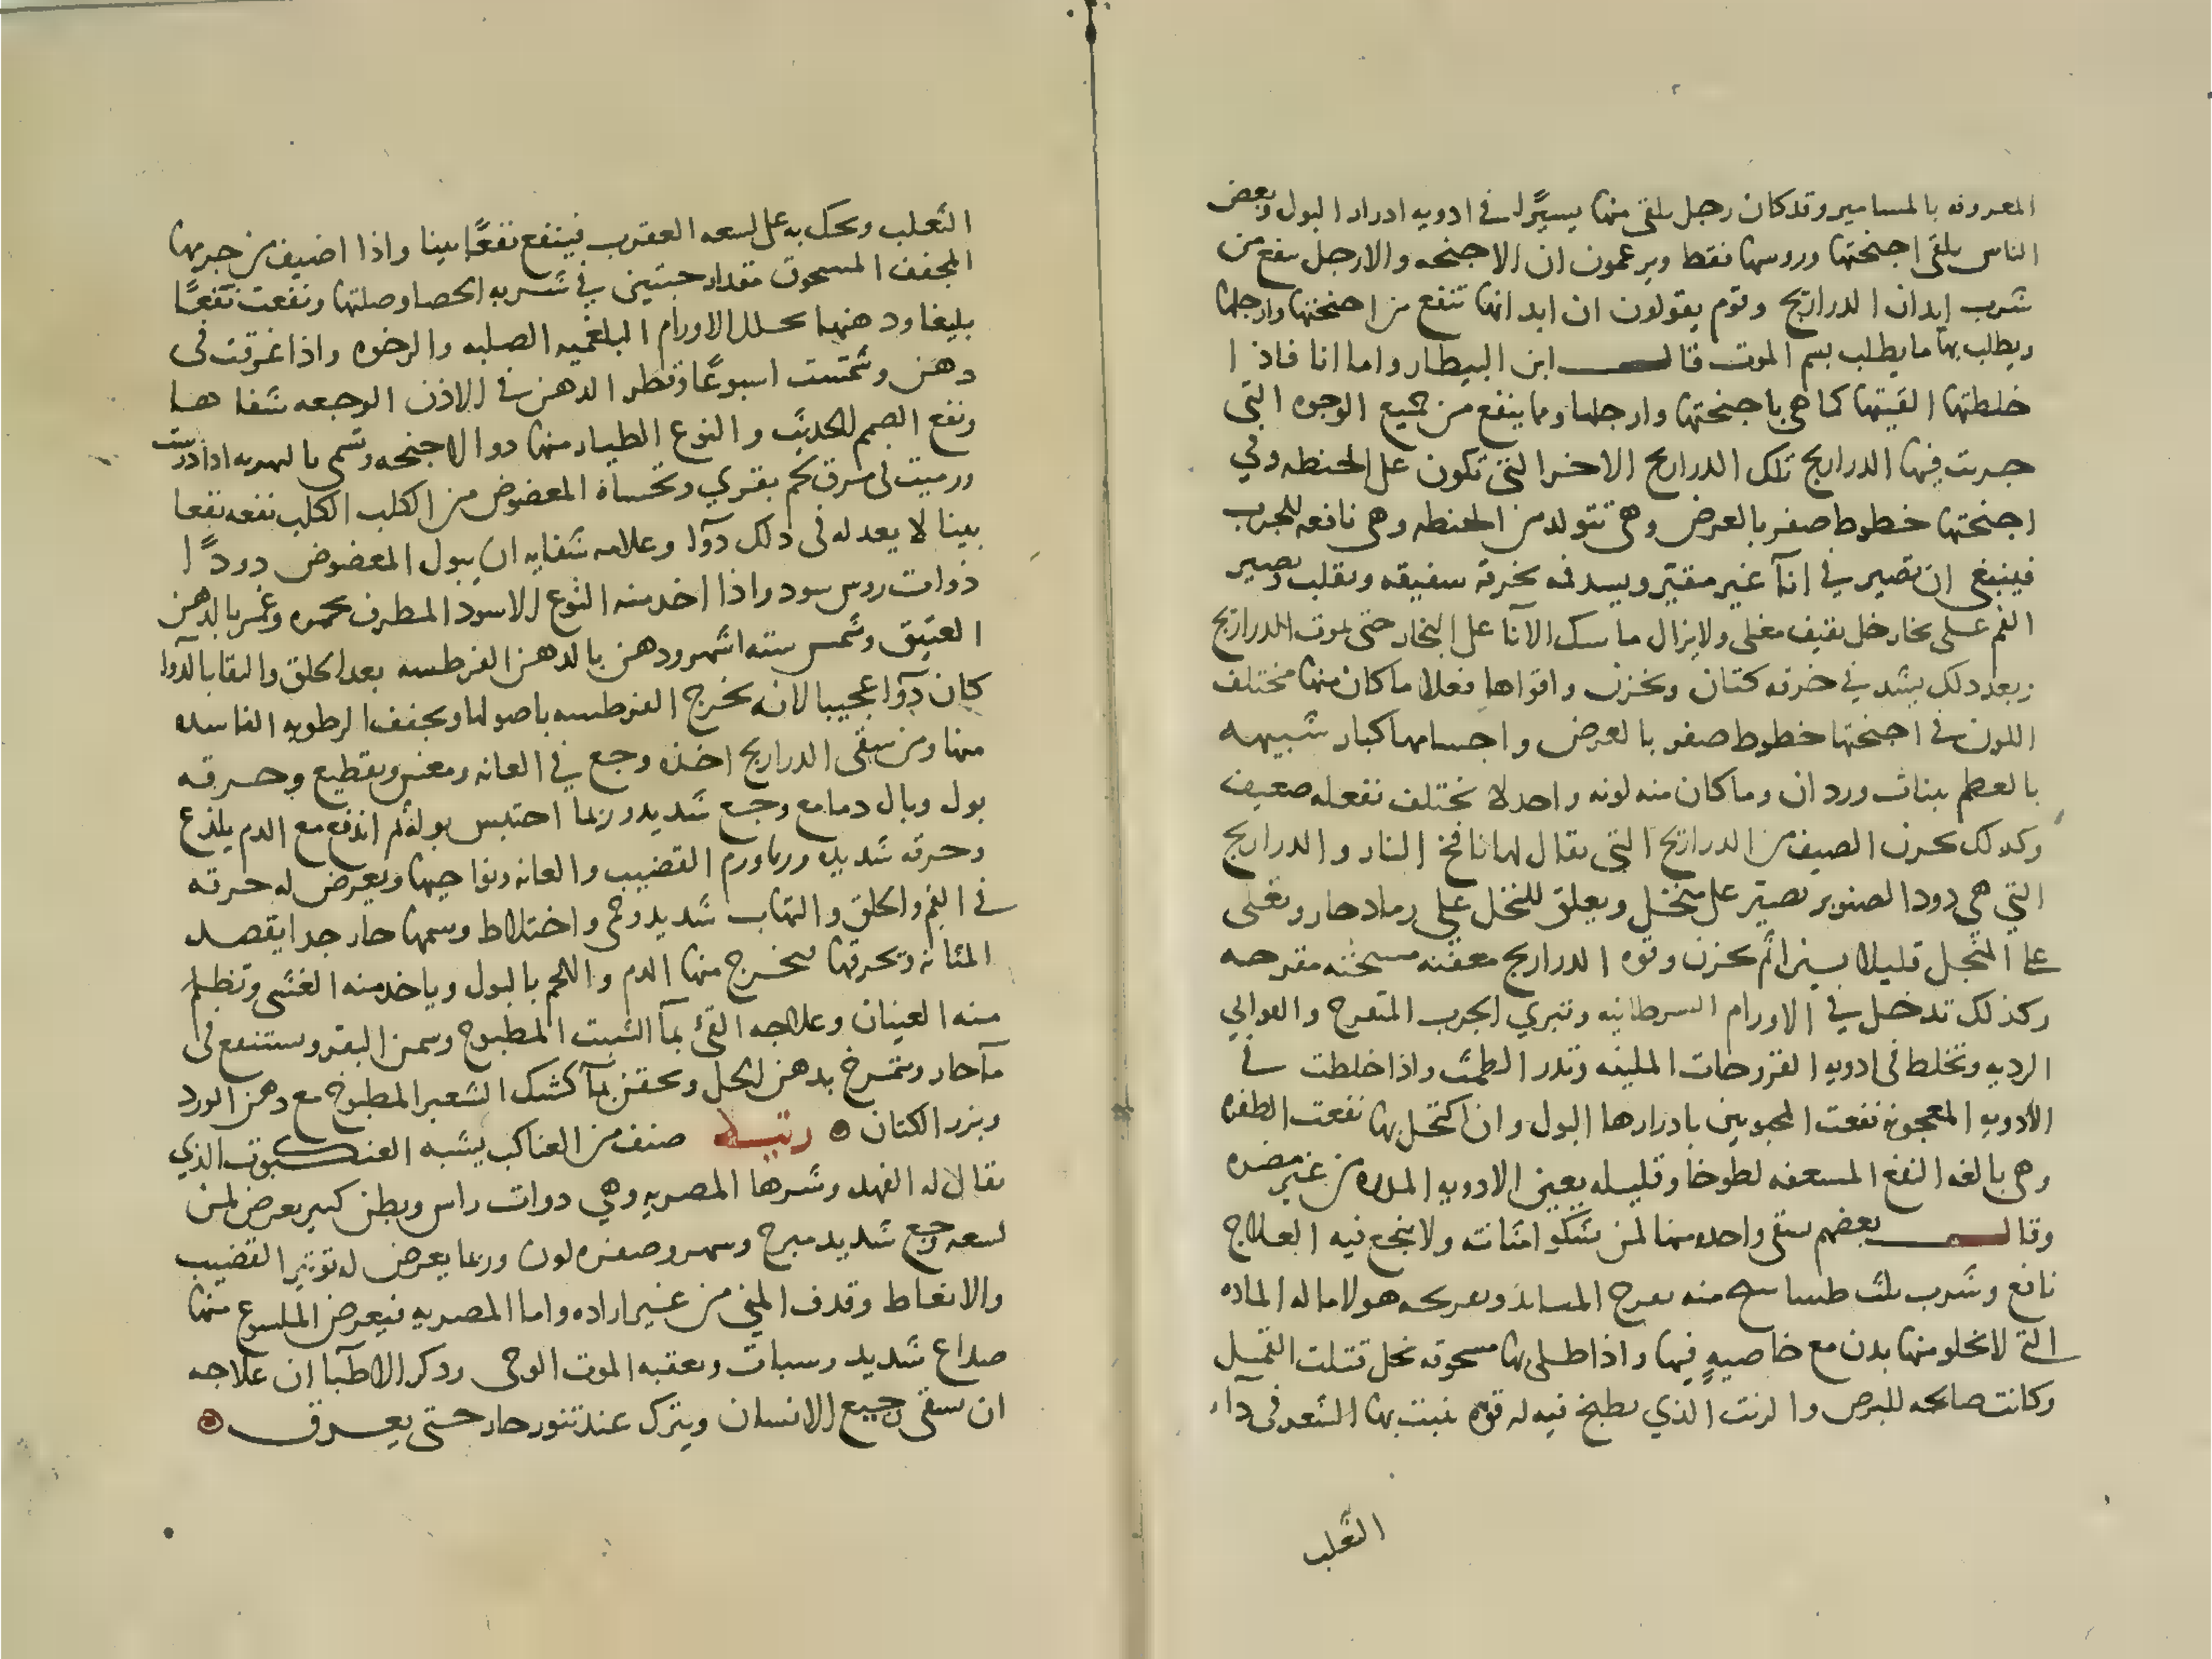 المعروفه بالمسامير وقد كان رجل يلقى منها يسيرًا في ادويه ادرار البول وبعض
الناس يلقى اجنحتها وروسها فقط ويزعمون ان الاجنحه والارجل تنفع من
شرب ابدان الدراريح وقوم يقولون ان ابدانها تنفع من اجنحتها وارجلها
ويطلب بها ما يطلب بسم الموت قال ابن البيطار واما انا فاذا
خلطتها القيتها كما هى باجنحتها وارجلها ومما ينفع من جميع الوجوه التى
جربت فيها الدراريح تلك الدراريح الاخر التى تكون على الحنطه وفي
اجنحتها خطوط صفر بالعرض وهى تتولد من الحنطه وهى نافعه للجرب
فينبغى ان تصير في انآ غير مقير ويسد فمه بخرقه سفيقه وتقلب وتصير
الفم على بخار خل ثقيف مغلى ولا يزال ماسك الآنا على البخار حتى تموت الدراريح
وبعد ذلك يشد في خرقه كتان وتخزن واقواها فعلا ما كان منها مختلف
اللون في اجنحتها خطوط صفر بالعرض واجسامها كبار شبيهه
بالعظم ببنات وردان وما كان منه لونه واحد لا يختلف نفعله ضعيف
وكدلك يحرف الصيف من الدراريح التى يقال لها نافخ النار والدراريح
التي هي دود الصنوبر تصير على منخل ويعلق للنخل على رماد حار وتغلى
على النخل قليلا يسيرا ثم تخزن وقوه الدراريح معفنه مسخنه مقرحه
وكذلك تدخل في الاورام السرطانيه وتبري الجرب المتقرح والقوابي
الرديه وتخلط فى ادويه القروحات الملينه وتدر الطمث واذا خلطت في
الأدويه المعجونه نفعت المحبونين بادرارها البول وان اكتحل بها نفعت الظفره
وهى بالغه النفع المسعفه لطوخا وقليله يعين الادويه المدره من غير مضره
وقال بعضهم يسقى واحده منها لمن يشكوا مثانته ولا ينجع فيه العلاج
نافع وشرب ثلث منه يقرح المثانه وتقريحه هو لاماله الماده
التي لا يخلو منها بدن مع خاصيةٍ فيها واذا طلى بها مسحوقه بخل قتلت القمل
وكانت صالحه للبرص والزيت الذي يطبخ فيه له قوه ينبت بها الشعر فى دآء
الثعلب
الثعلب ويحك به على لسعه العقرب فينتفع نفعًا بينا واذا اضيف من جرمها
المجفف المسحوق مقدار حبتين في شربه الحصا وصلتها ونفعت نفعًا
بليغا ودهنها يحلل الاورام البلغميه الصلبه والرخوه واذا غرقت فى
دهن وشمست اسبوعًا وقطر الدهن في الاذن الوجعه شفاها
ونفع الصمم الحديث والنوع الطيار منها ذو الاجنحه وتسمى بالهربه اذا درست
ورميت فى مرق لحم بقري وتحساه المعضوض من الكلب الكلب نفعه نفعا
بينا لا يعدله فى ذلك دوآا وعلامه شفايه ان يبول المعضوض دودًا
ذوات روس سود واذا اخذ منه النوع الاسود المطرف بحمره وغمر بالدهن
العتيق وشمس سته اشهر ودهن بالدهن القرطسه بعد الحلق والنقا بالدوا
كان دوآا عجيبا لانه يخرج القرطسه باصولها ويجفف الرطوبه الفاسده
منها ومن سقى الدراريح اخذه وجع في العانه ومغس وتقطيع وحرقه
بول وبال دما مع وجع شديد وربما احتبس بوله ثم اندفع مع الدم يلذع
وحرقه شديده وربما ورم القضيب والعانه ونواحيها ويعرض له حرقه
في الفم والحلق والتهاب شديد وحمى واختلاط وسمها حار جدا يقصد
المثانه ويحرقها فيخرج منها الدم واللحم بالبول وياخذ منه الغشى وتظلم
منه العينان وعلاجه القئ بمآ الشبت المطبوخ وسمن البقر ويستنقع فى
مآ حار وتمرخ بدهن الحل ويحقن بمآ كشك الشعير المطبوخ مع دهن الورد
وبزر الكتان رتيله صنف من العناكب يشبه العنكبوت الذي
يقال له الفهد وشرها المصريه وهي ذوات راس وبطن كبير يعرض لمن
لسعه وجع شديد مبرح وسهر وصفره لون وربما يعرض له توتير القضيب
والانعاظ وقذف المني من غير اراده واما المصريه فيعرض الملسوع منها
صداع شديد وسبات ويعقبه الموت الوحى وذكر الاطبآ ان علاجه
ان يسقى رجيع الانسان ويترك عند تنور حار حتى يعرق